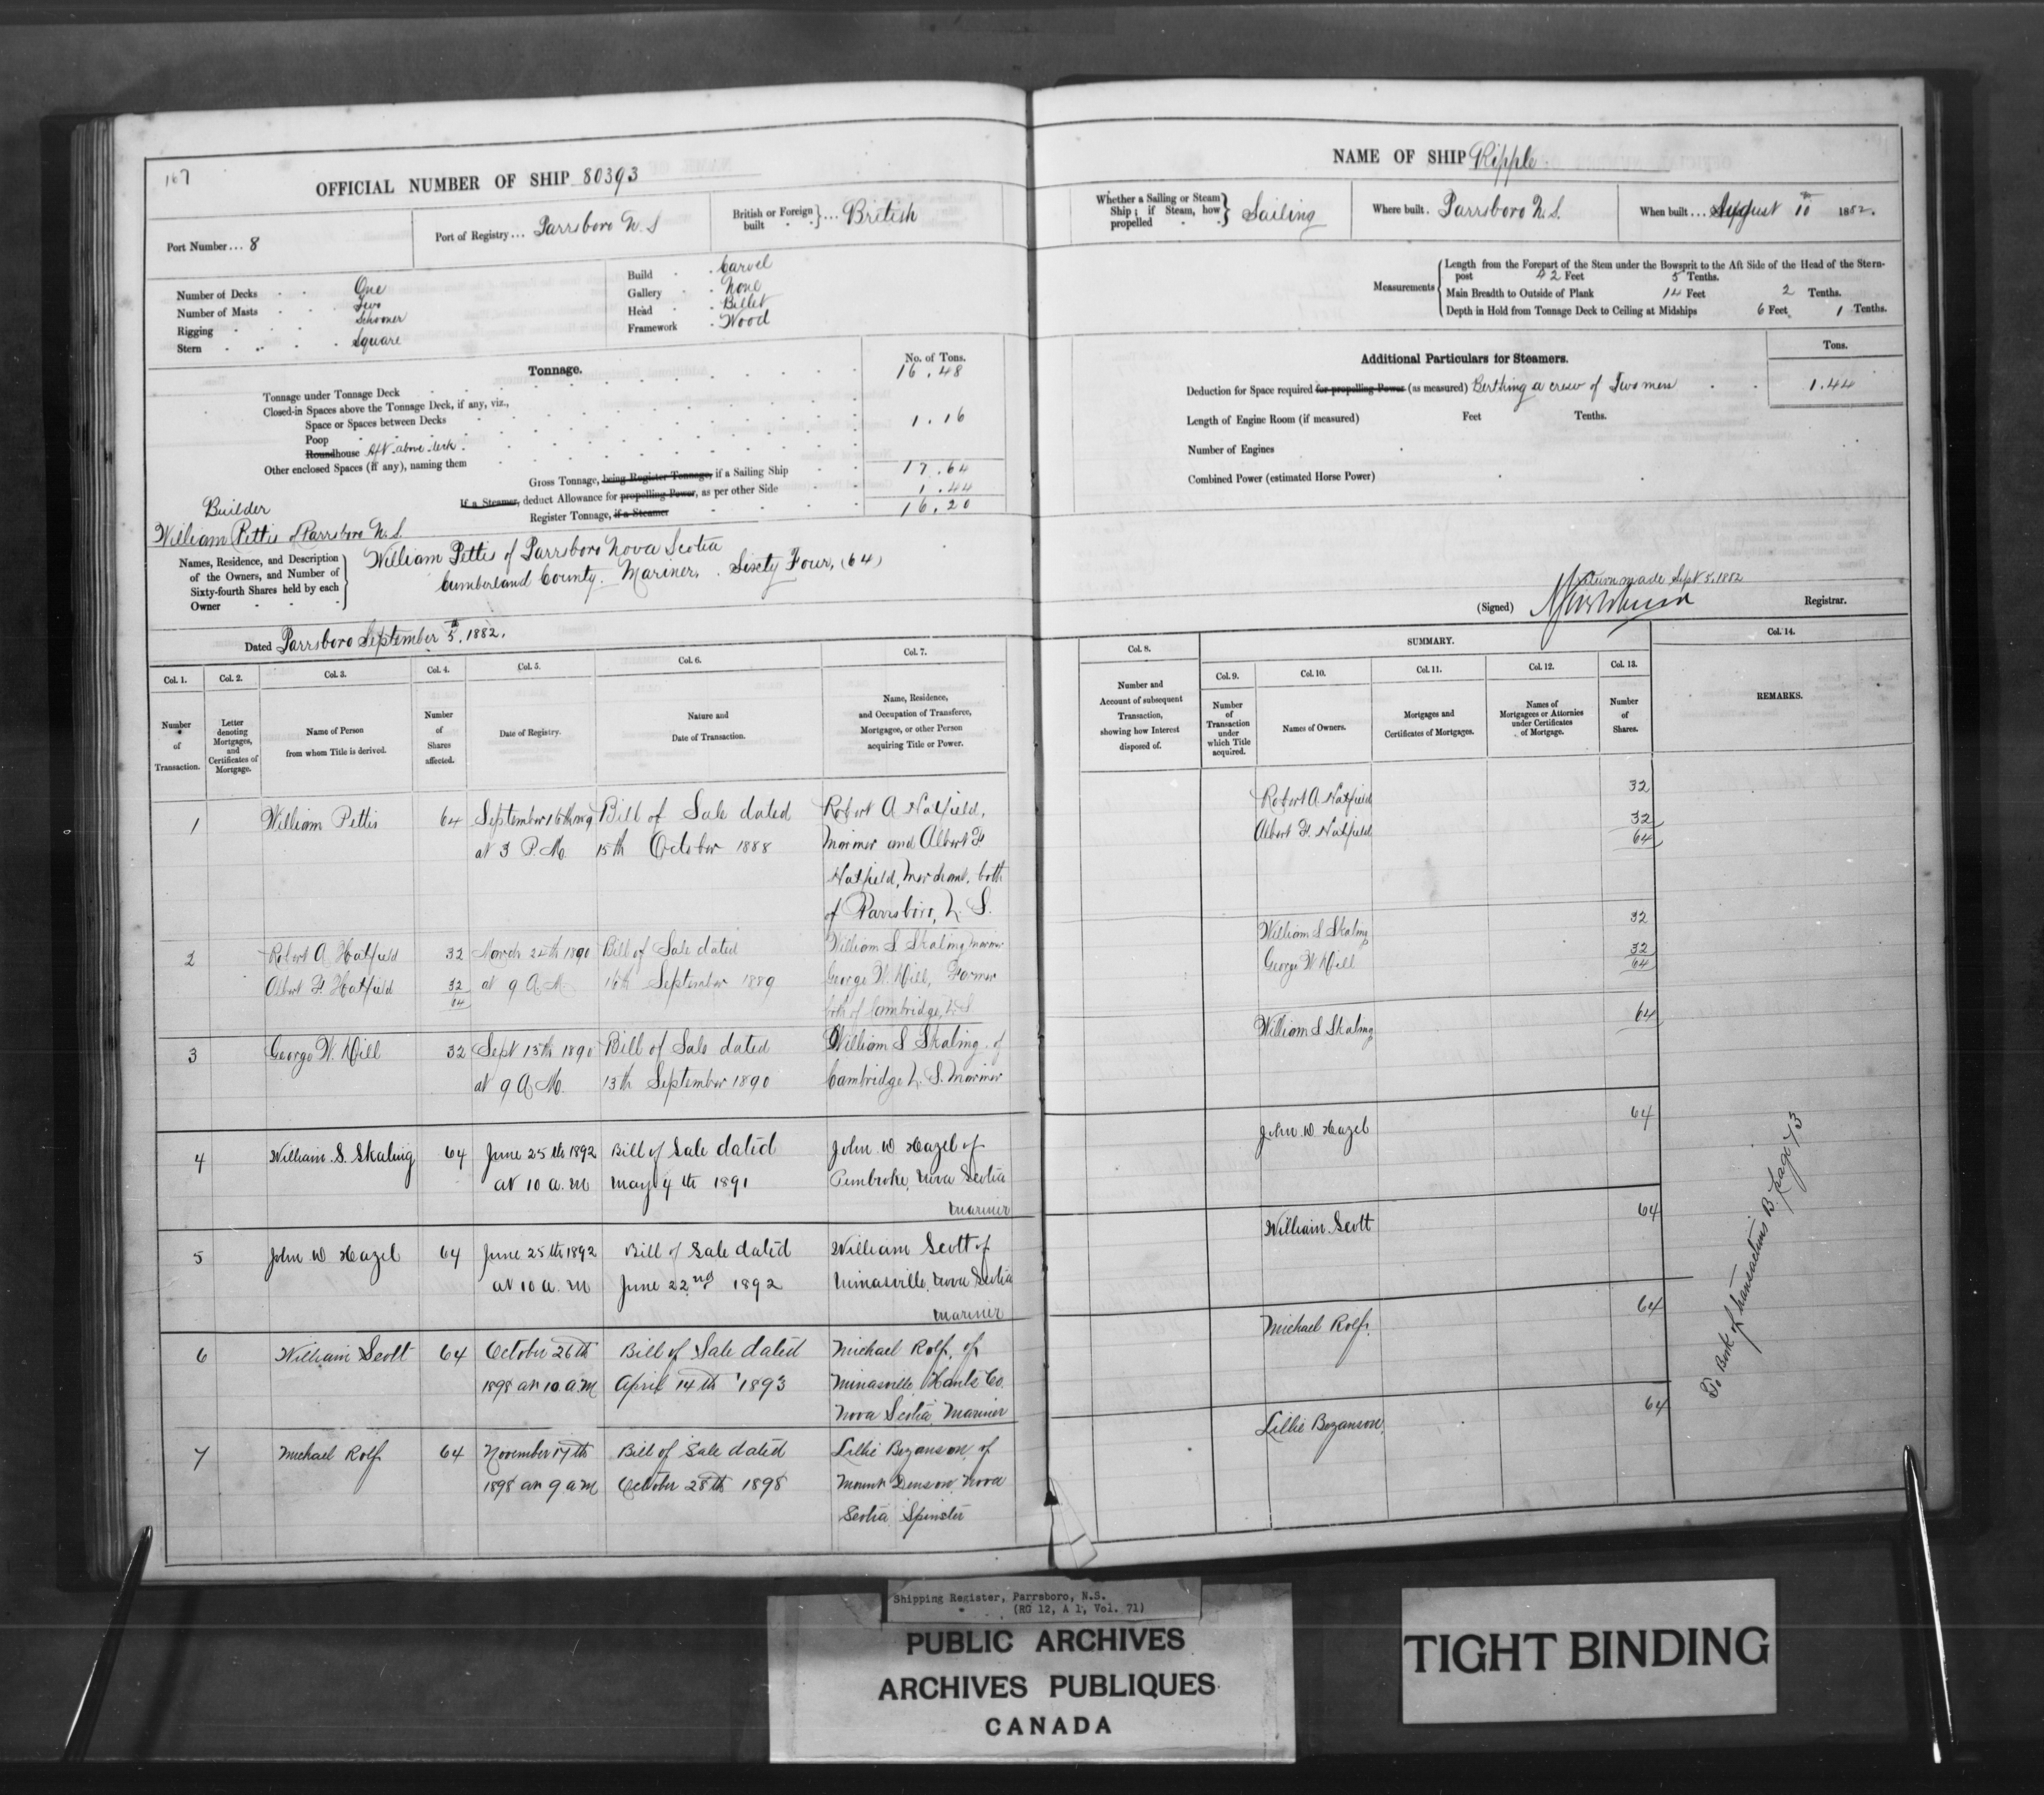 167
OFFICIAL NUMBER OF SHIP 80393
Port Number... 8
Port of Registry... Parrsboro N. S
British or Foreign built } ... British
Number of Decks One
Number of Masts Two
Rigging Schooner
Stern Square
Build Carvel
Gallery None
Head Billet
Framework Wood
Tonnage.
No. of Tons.
Tonnage under Tonnage Deck 16.48
Closed-in Spaces above the Tonnage Deck, if any, viz.,
Space or Spaces between Decks
Poop 1.16
Roundhouse Aft above deck
Other enclosed Spaces (if any), naming them
Gross Tonnage, being Register Tonnage, if a Sailing Ship 17.64
If a Steamer, deduct Allowance for propelling Power, as per other Side 1.44
Register Tonnage, if a Steamer 16.20
Builder
William Pettis of Parrsboro N. S.
Names, Residence, and Description
of the Owners, and Number of
Sixty-fourth Shares held by each
Owner
William Pettis of Parrsboro Nova Scotia
Cumberland County. Mariner. Sixty Four, (64)
Dated Parrsboro September 5th, 1882.
Col. 1. Col. 2. Col. 3. Col. 4. Col. 5. Col. 6. Col. 7.
Number of Transaction.
Letter denoting Mortgages, and Certificates of Mortgage.
Name of Person from whom Title is derived.
Number of Shares affected.
Date of Registry.
Nature and Date of Transaction.
Name, Residence, and Occupation of Transferee, Mortgagee, or other Person acquiring Title or Power.
1 William Pettis 64 September 16th 1889 Bill of Sale dated Robert A Hatfield,
at 3 P. M. 15th October 1888 Mariner and Albert F
Hatfield, Merchant, both
of Parrsboro, N. S.
2 Robert A Hatfield 32 March 24th 1890 Bill of Sale dated William S Skaling Mariner
Albert F Hatfield 32 at 9 A M 16th September 1889 George W. Hill, Farmer
64 both of Cambridge, N. S
3 George W. Hill 32 Sept 15th 1890 Bill of Sale dated William S Skaling of
at 9 A M. 13th September 1890 Cambridge N. S. Mariner
4 William. S. Skaling 64 June 25th 1892 Bill of Sale dated John W Hazel of
at 10 a. m May 4th 1891 Pembroke, Nova Scotia
Mariner
5 John W Hazel 64 June 25th 1892 Bill of Sale dated William Scott of
at 10 a. m June 22nd 1892 Minasville, Nova Scotia
Mariner
6 William Scott 64 October 26th Bill of Sale dated Michael Rolf, of
1898 at 10 a.m April 14th 1893 Minasville Hants Co.
Nova Scotia, Mariner
7 Michael Rolf 64 November 17th Bill of Sale dated Lillie Bezanson, of
1898 at 9 a m October 28th 1898 Mount Denson, Nova
Scotia Spinster
NAME OF SHIP Ripple
Whether a Sailing or Steam Ship; if Steam, how propelled } Sailing
Where built. Parrsboro N. S.
When built... August 10th 1882.
Measurements
Length from the Forepart of the Stem under the Bowsprit to the Aft Side of the Head of the Stern-
post 42 Feet 5 Tenths.
Main Breadth to Outside of Plank 14 Feet 2 Tenths.
Depth in Hold from Tonnage Deck to Ceiling at Midships 6 Feet 1 Tenths.
Additional Particulars for Steamers.
Tons.
Deduction for Space required for propelling Power (as measured) Berthing a crew of Two men 1.44
Length of Engine Room (if measured) Feet Tenths.
Number of Engines
Combined Power (estimated Horse Power)
Return made Sept 5, 1882
(Signed) Registrar.
Col. 8. SUMMARY. Col. 14.
Col. 9. Col. 10. Col. 11. Col. 12. Col. 13.
Number and Account of subsequent Transaction, showing how Interest disposed of.
Number of Transaction under which Title acquired.
Names of Owners.
Mortgages and Certificates of Mortgages.
Names of Mortgagees or Attornies under Certificates of Mortgage.
Number of Shares.
REMARKS.
Robert A. Hatfield 32
Albert F. Hatfield 32
64
William S Skaling 32
George W. Hill 32
64
William S Skaling 64
John W Hazel 64
William Scott 64
Michael Rolf. 64
Lillie Bezanson, 64
To Book of transactions B page 73
Shipping Register, Parrsboro, N.S.
(RG 12, A 1, Vol. 71)
PUBLIC ARCHIVES
ARCHIVES PUBLIQUES
CANADA
TIGHT BINDING